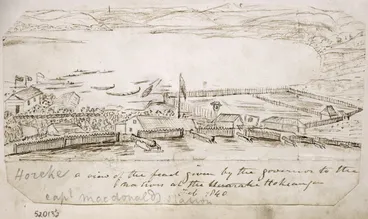 Horeke a view of the feast given by the governor to the
natives at the Hokianga
Feb 1840
Capt Macdonald's